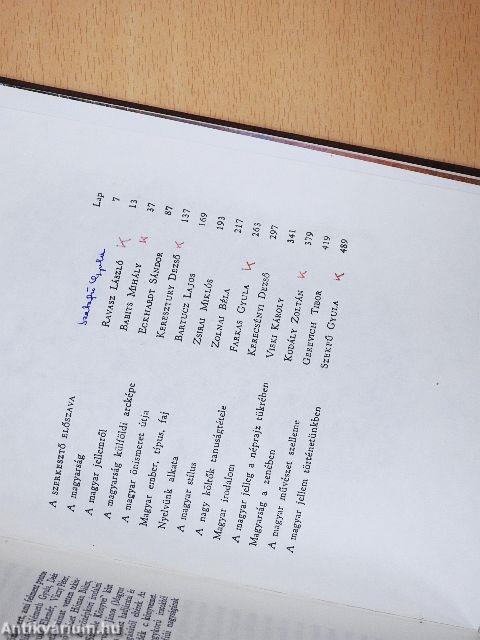 Lap
A SZERKESZTŐ ELŐSZAVA Szekfű Gyula 7
A magyarság RAVASZ LÁSZLÓ K 13
A magyar jellemről BABITS MIHÁLY K 37
A magyarság külföldi arcképe ECKHARDT SÁNDOR 87
A magyar önismeret útja KERESZTURY DEZSŐ K 137
Magyar ember, típus, faj BARTUCZ LAJOS 169
Nyelvünk alkata ZSIRAI MIKLÓS 193
A magyar stílus ZOLNAI BÉLA 217
A nagy költők tanuságtétele FARKAS GYULA K 263
Magyar irodalom KERECSÉNYI DEZSŐ 297
A magyar jelleg a néprajz tükrében VISKI KÁROLY 341
Magyarság a zenében KODÁLY ZOLTÁN K 379
A magyar művészet szelleme GEREVICH TIBOR 419
A magyar jellem történetünkben SZEKFŰ GYULA K 489
Antikvárium.hu